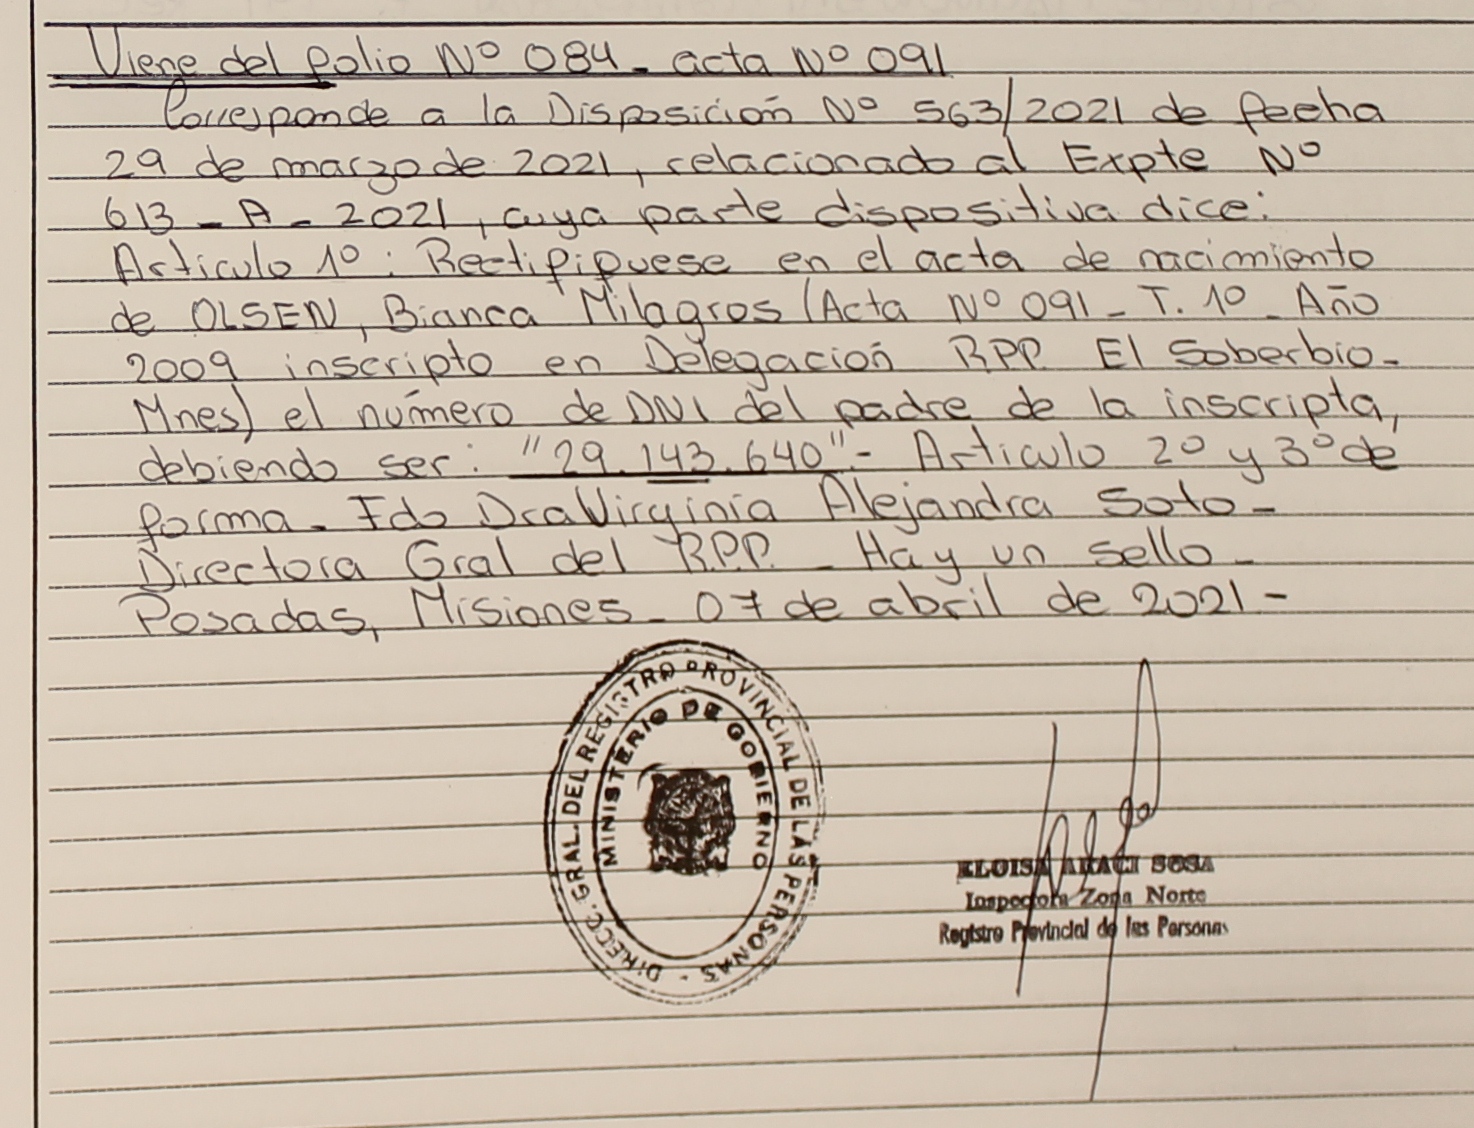 Viene del folio Nº 084 - acta Nº 091
Corresponde a la Disposición Nº 563/2021 de fecha
29 de marzo de 2021, relacionado al Expte Nº
613 - A - 2021, cuya parte dispositiva dice:
Articulo 1º: Rectifiquese en el acta de nacimiento
de OLSEN, Bianca Milagros (Acta Nº 091 - T. 1º - Año
2009 inscripto en Delegación RPP. El Soberbio -
Mnes) el número de DNI del padre de la inscripta,
debiendo ser: "29.143.640".- Articulo 2º y 3º de
forma - Fdo Dra Virginia Alejandra Soto -
Directora Gral del R.P.P. - Hay un sello -
Posadas, Misiones - 07 de abril de 2021 -
DIRECC. GRAL. DEL REGISTRO PROVINCIAL DE LAS PERSONAS -
MINISTERIO DE GOBIERNO
ELOISA ARACI SOSA
Inspectora Zona Norte
Registro Provincial de las Personas